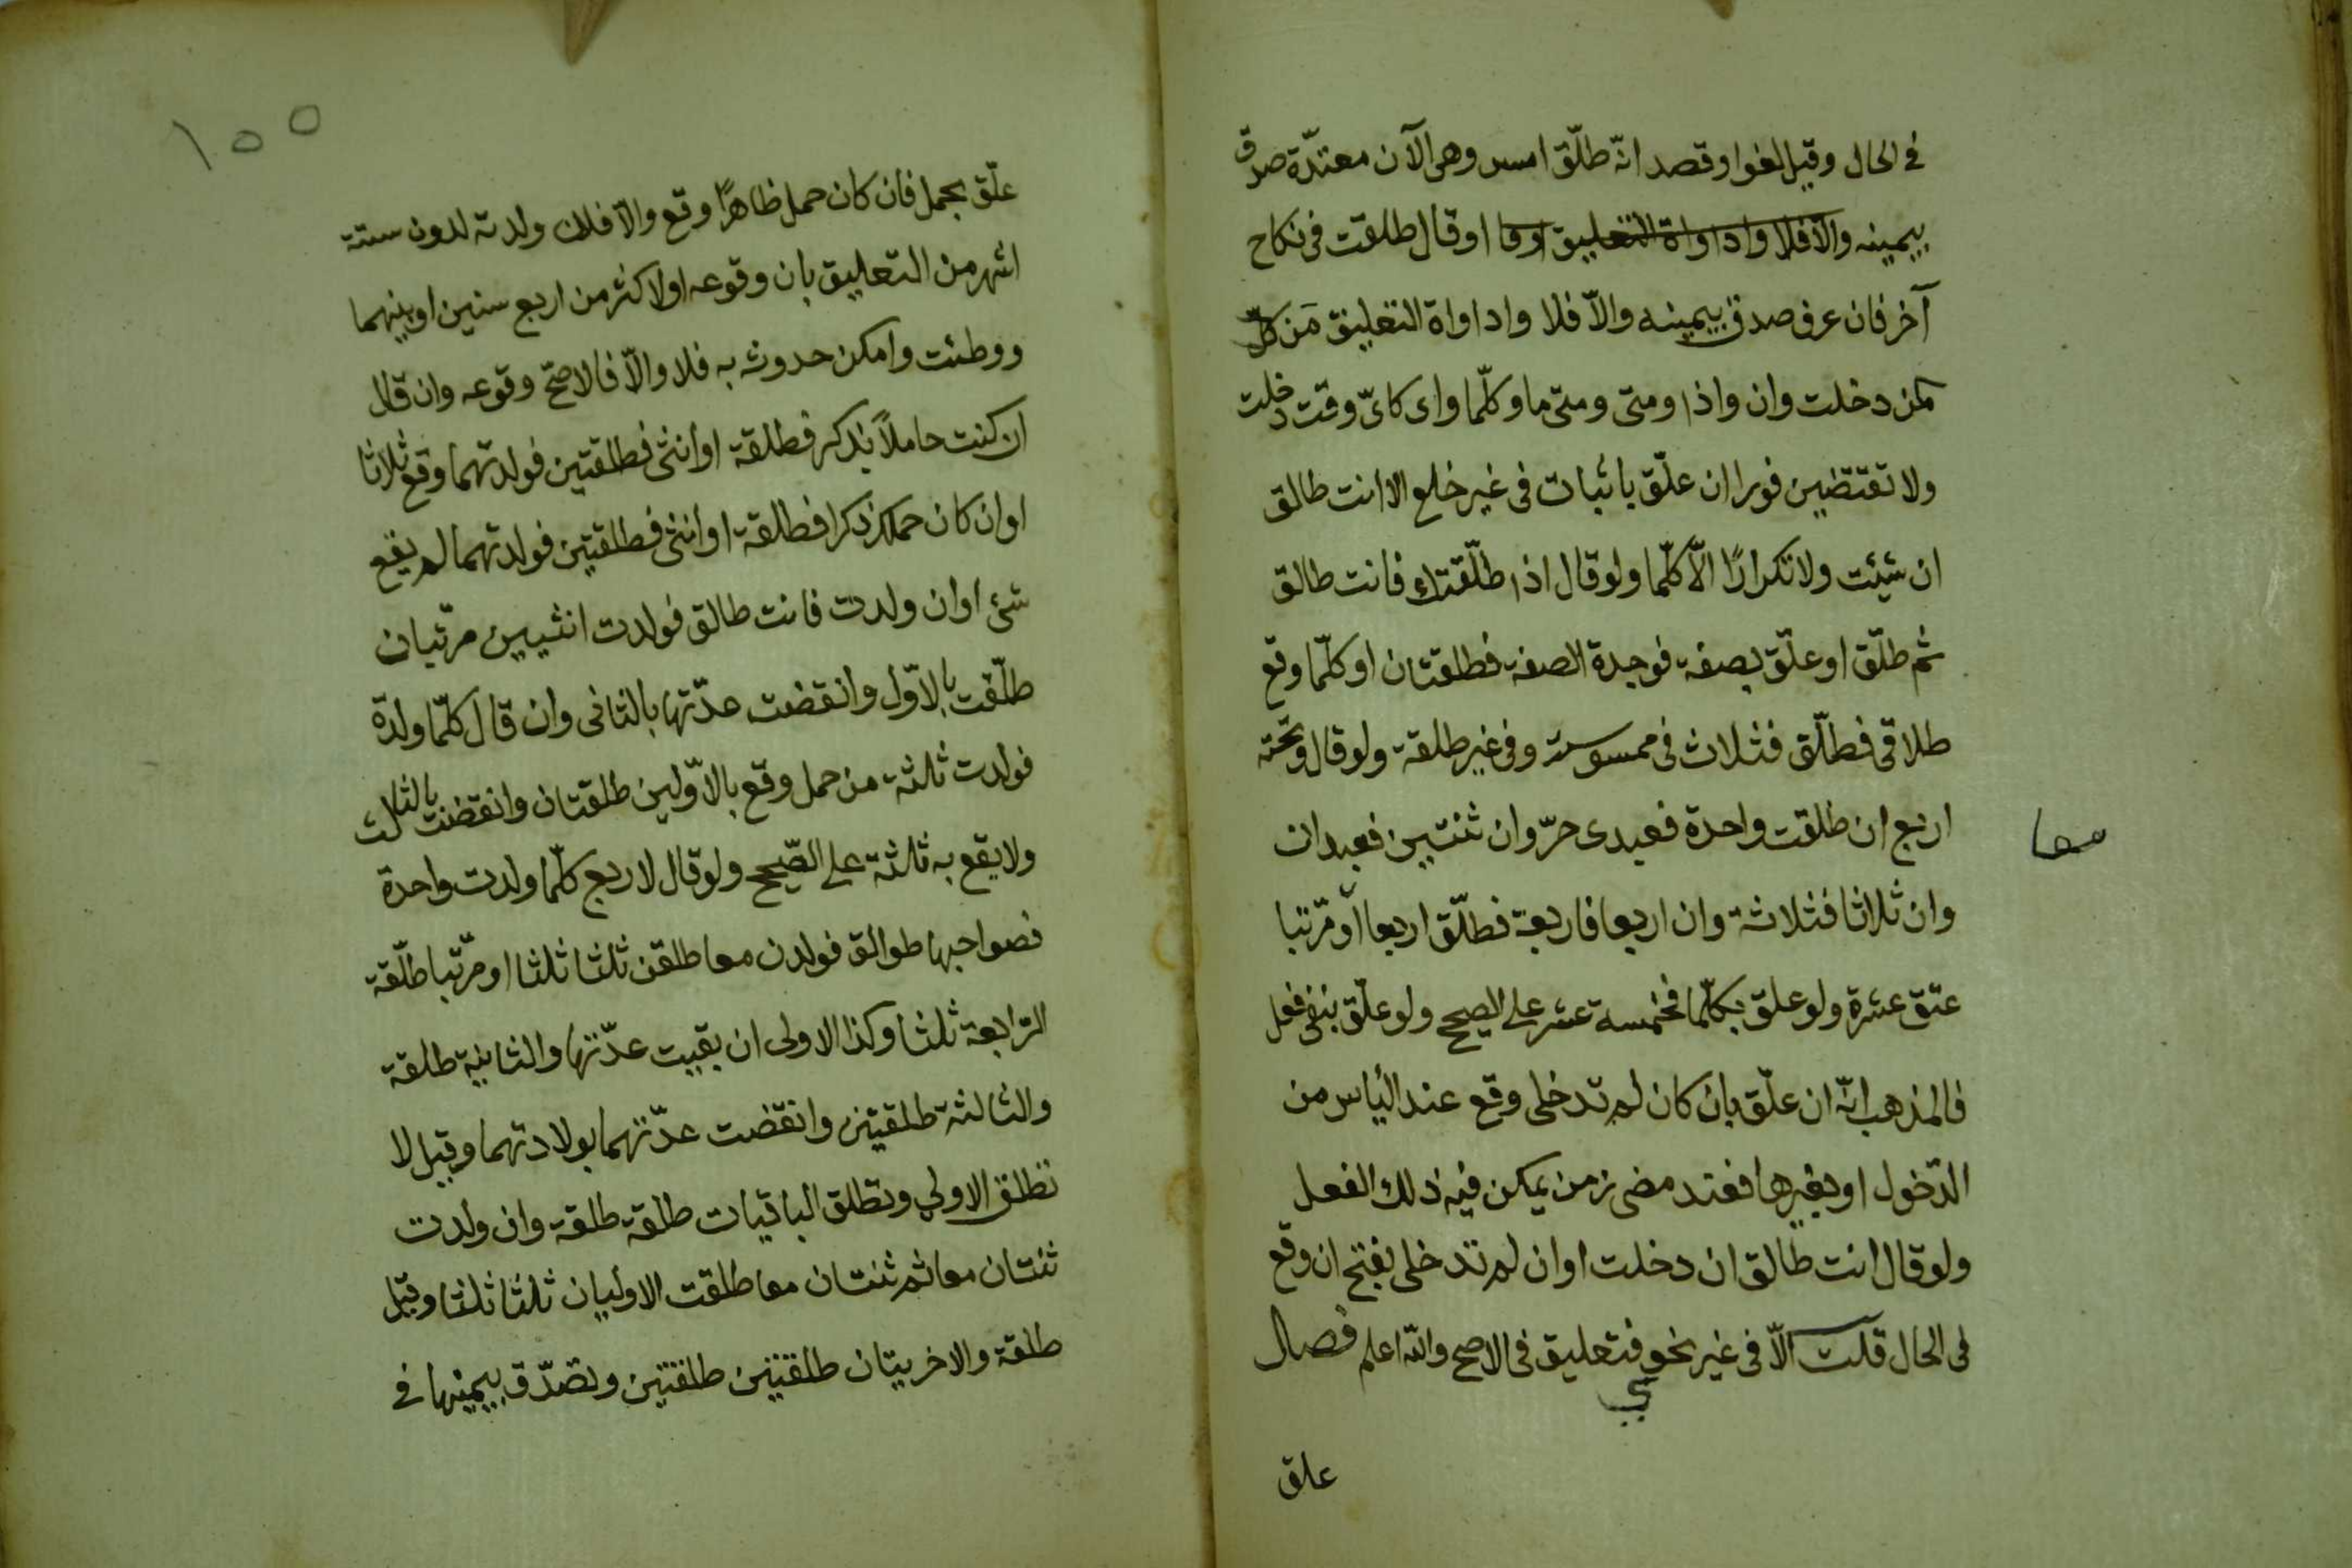 في الحال وقيل لغو اوقصد انّه طلّق امس وهي الآن معتدّة صدق
بيمينه والّا فلا واداواة التعليق اوقا اوقال طلقت في نكاح
آخر فان عرف صدق بيمينه والّا فلا واداواة التعليق مَن كلّ
كمن دخلت وان واذا ومتى ومتى ما وكلّما واى كاىّ وقت دخلت
ولا تقتضين فورا ان علّق باثبات في غير خلع الا انت طالق
ان شيئت ولا تكرارًا الّا كلّما ولو قال اذا طلّقتك فانت طالق
ثم طلّق اوعلّق بصفة فوجدة الصفة فطلقتان اوكلّما وقع
طلاقي فطلّق فثلاث في ممسوسة وفي غير طلقة ولو قال وتحته
اربع ان طلقت واحدة فعبدى حرّ وان ثنتين فعبدان
معا
وان ثلاثا فثلاثة وان اربعا فاربعة فطلّق اربعا او مرّتبا
عتق عشرة ولو علّق بكلّما فخمسة عشر على الصحيح ولو علّق بنفي فعل
فالمذهب انّه ان علّق بان كان لم تدخلي وقع عند الياس من
الدّخول اوبغيرها فعند مضى زمن يمكن فيه ذلك الفعل
ولو قال انت طالق ان دخلت اوان لم تدخلي بفتح ان وقع
في الحال قلت الّا في غير نحوي فتعليق في الاصح والله اعلم فصل
علق
١٥٥
علّق بحمل فان كان حمل ظاهرًا وقع والّا فلان ولدته لدون ستة
اشهر من التعليق بان وقوعه اولاكثر من اربع سنين اوبينهما
ووطئت وامكن حدوثه به فلا والّا فالاصحّ وقوعه وان قال
ان كنت حاملاً بذكر فطلقة اوانثى فطلقتين فولدتهما وقع ثلاثا
اوان كان حملك ذكرا فطلقة اوانثى فطلقتين فولدتهما لم يقع
شئ اوان ولدت فانت طالق فولدت انثيين مرتّبان
طلّقت بالاوّل وانقضت عدّتها بالثاني وان قال كلّما ولدة
فولدت ثلثة من حمل وقع بالاوّلين طلقتان وانقضت بالثلث
ولا يقع به ثلثة على الصّحيح ولو قال لاربع كلّما ولدت واحدة
فصواحبها طوالق فولدن معا طلقن ثلثا ثلثا اومرّتبا طلّقة
الرّابعة ثلثا وكذا الاولى ان بقيت عدّتها والثانية طلقة
والثالثة طلقتين وانقضت عدّتهما بولادتهما وقيل لا
تطلق الاولي وتطلق الباقيات طلقة طلقة وان ولدت
ثنتان معا ثم ثنتان معا طلقت الاوليان ثلثا ثلثا وقيل
طلقة والاخريتان طلقتين طلقتين وتصدّق بيمينها في